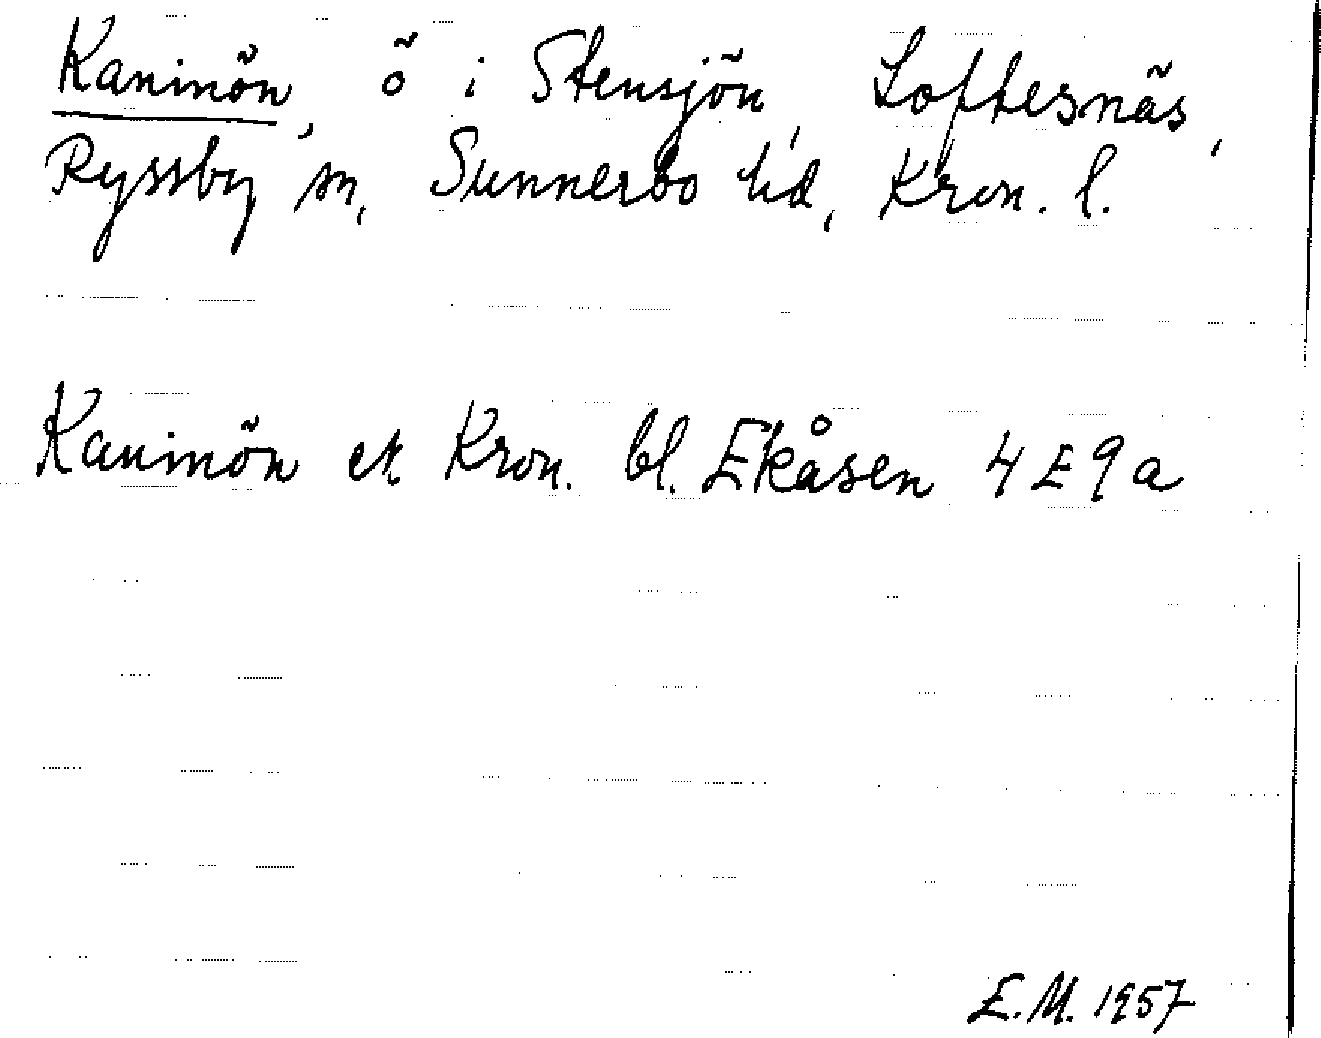 Kaninön, ö i Stensjön, Loftesnäs,
Ryssby sn, Sunnerbo hd, Kron. l.
Kaninön ek Kron. bl. Ekåsen 4E9a
E.M. 1957